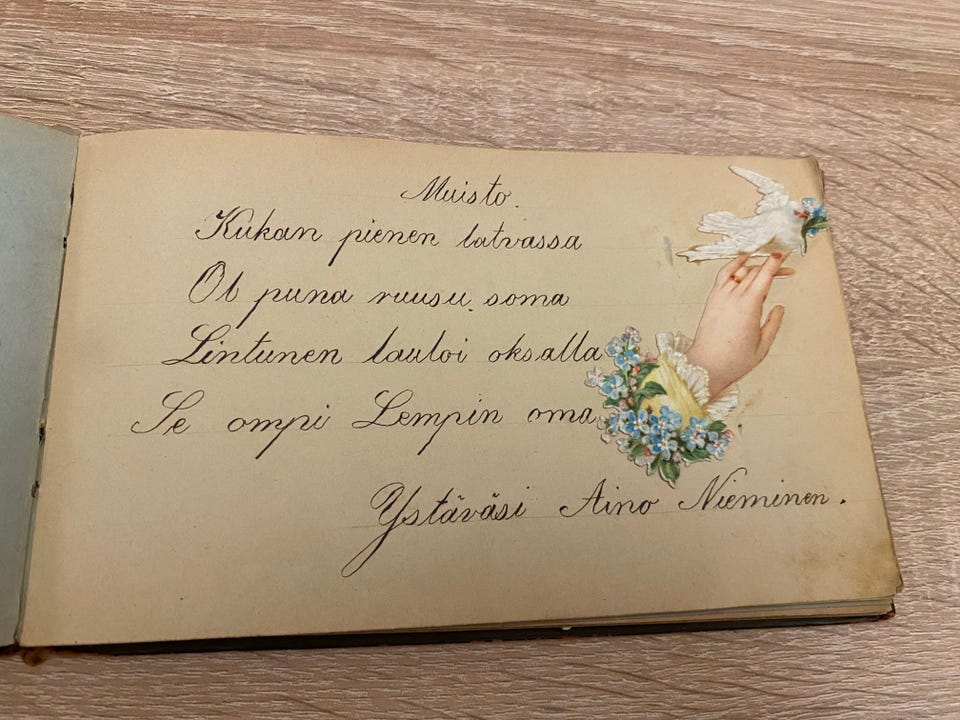 Muisto.
Kukan pienen latvassa
Ol puna ruusu soma
Lintunen lauloi oksalla
Se ompi Lempin oma
Ystäväsi Aino Nieminen.